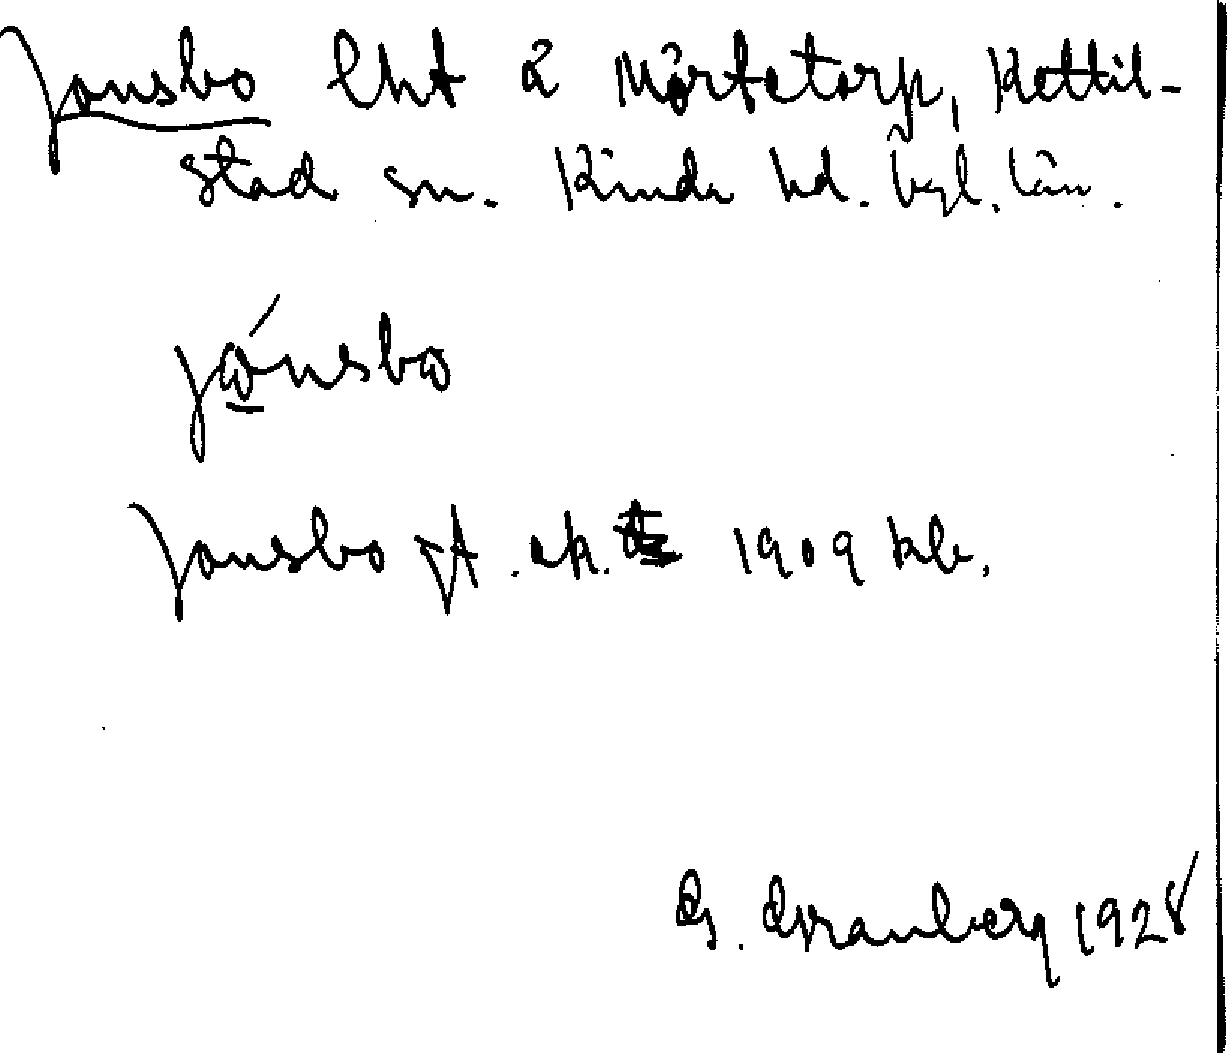 Jonsbo lht å Mörtetorp, Kettil-
stad sn. Kinda hd. Ögl. län.
jónsbo
Jonsbo jt. ek. 1909 klr.
G. Granberg 1928